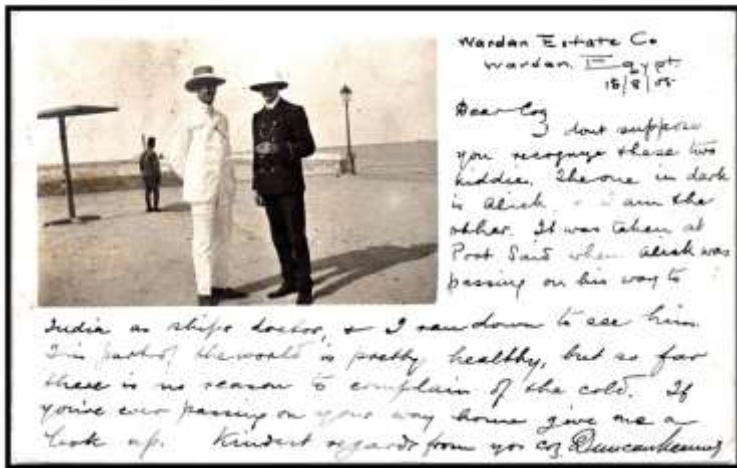 Wardan Estate Co
Wardan. Egypt
18/8/05
Dear Coz
I dont suppose
you recognize these two
kiddie. The one in dark
is Alick & I am the
other. It was taken at
Port Said when Alick was
passing on his way to
India as ships doctor, & I ran down to see him
This part of the world is pretty healthy, but so far
there is no reason to complain of the cold. If
you're ever passing on your way home give me a
look up. Kindest regards from yor coz Duncan